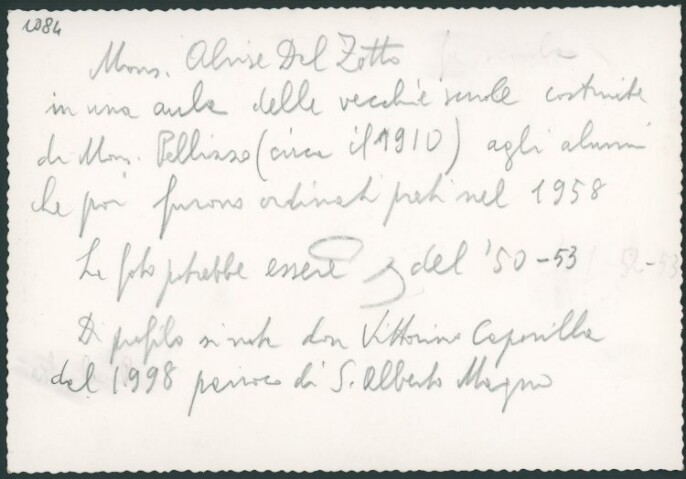 1084
Mons. Alvise Dal Zotto
in una aula delle vecchie scuole costruite
da Mons. Pellizzo (circa il 1910) agli alunni
che poi furono ordinati preti nel 1958
La foto potrebbe essere del '50-53
Di profilo si nota don Vittorino
dal 1998 parroco di S. Alberto Magno